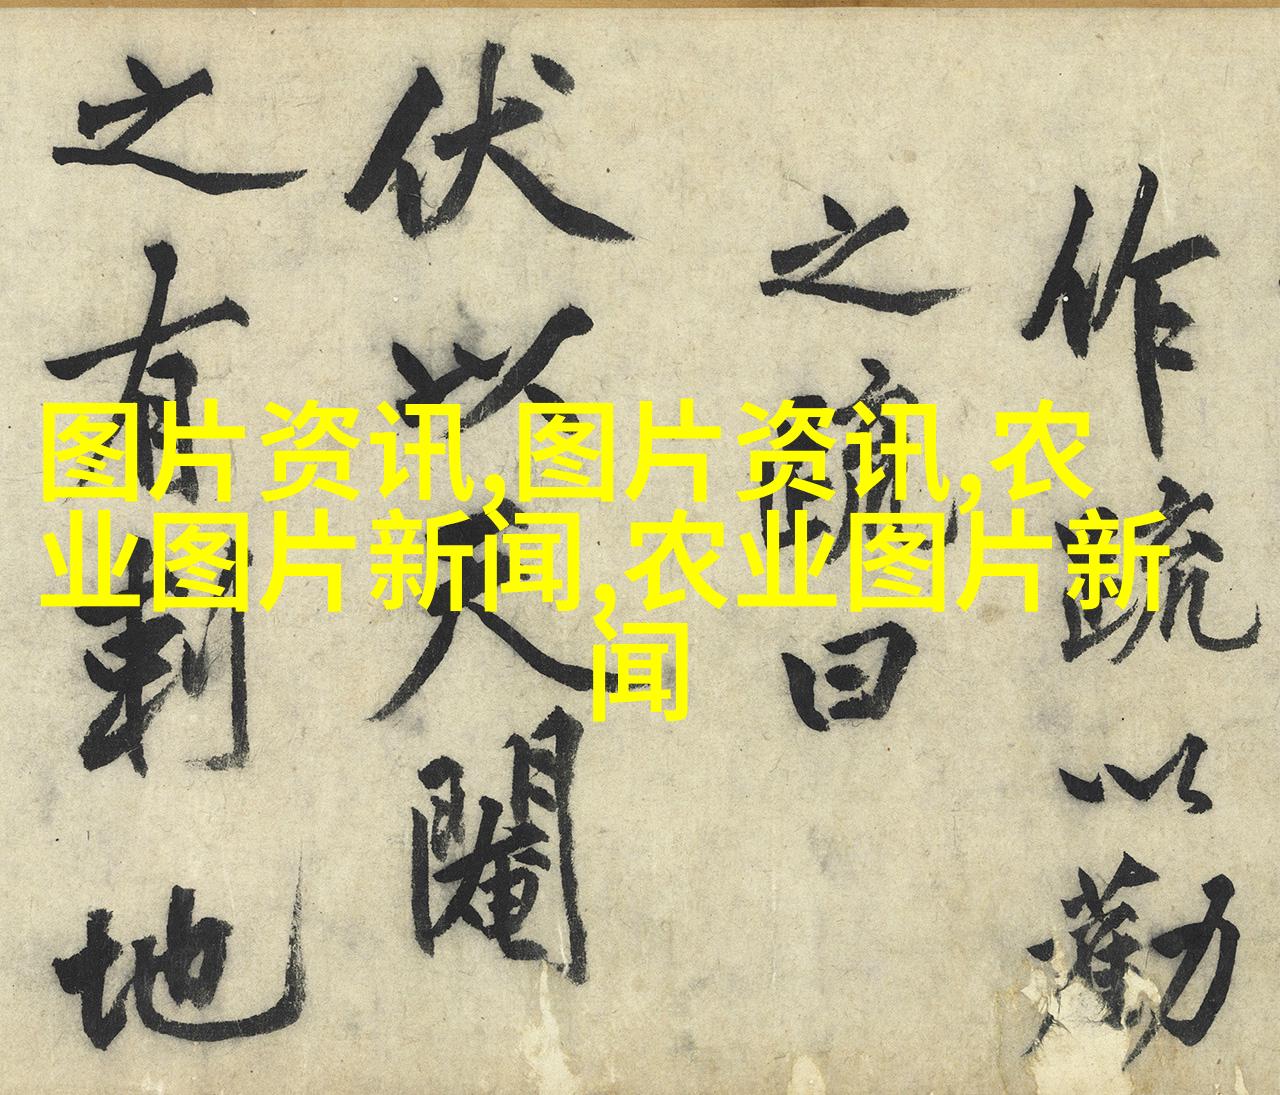 作疏以勸
之疏曰
伏以閹
之有地
图片资讯,图片资讯,农
业图片新闻,农业图片新
闻